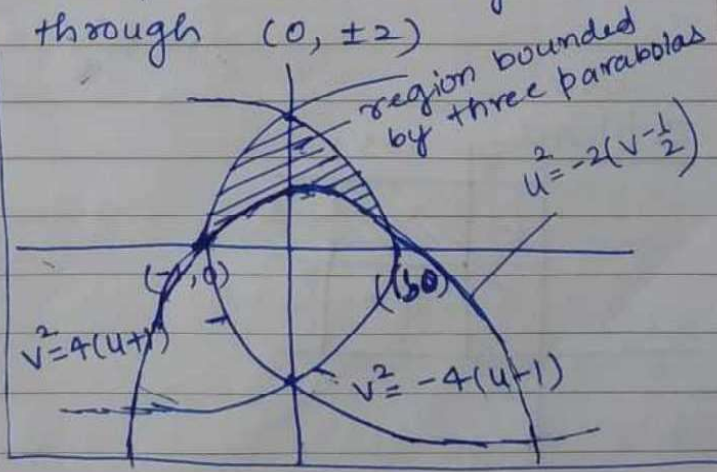 through (0, ±2)
region bounded
by three parabolas
u² = -2(v-1/2)
(-1,0)
(1,0)
v² = 4(u+1)
v² = -4(u-1)